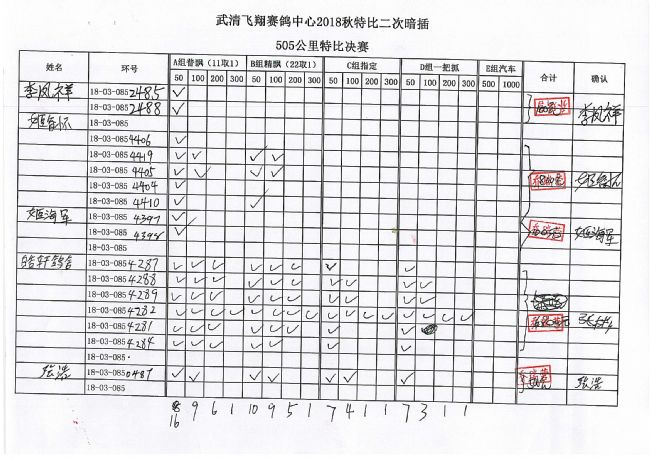 武清飞翔赛鸽中心2018秋特比二次暗插
505公里特比决赛
姓名 环号 A组普飘（11取1） B组精飘（22取1） C组指定 D组一把抓 E组汽车 合计 确认
50 100 200 300 50 100 200 300 50 100 200 300 50 100 200 300 500 1000
李凤祥 18-03-0852485 ✓ 李凤祥
18-03-0852488 ✓
18-03-085
18-03-0854406 ✓
18-03-0854419 ✓ ✓ ✓ ✓
18-03-0854405 ✓ ✓ ✓ ✓
18-03-0854404 ✓
18-03-0854410 ✓ ✓
姬海军 18-03-0854397 ✓ 姬海军
18-03-0854398 ✓
18-03-085
皓轩鸽舍 18-03-0854287 ✓ ✓ ✓ ✓ ✓ ✓ ✓ ✓
18-03-0854288 ✓ ✓ ✓ ✓ ✓ ✓ ✓ ✓ ✓ ✓
18-03-0854289 ✓ ✓ ✓ ✓ ✓ ✓ ✓ ✓ ✓ ✓
18-03-0854282 ✓ ✓ ✓ ✓ ✓ ✓ ✓ ✓ ✓ ✓ ✓ ✓ ✓ ✓ ✓ ✓
18-03-0854281 ✓ ✓ ✓ ✓ ✓ ✓ ✓ ✓
18-03-0854284 ✓ ✓ ✓ ✓ ✓ ✓ ✓
18-03-085
张浩 18-03-0850487 ✓ ✓ ✓ ✓ ✓ ✓ ✓ 张浩
18-03-085
16 9 6 1 10 9 5 1 7 4 1 1 7 3 1 1